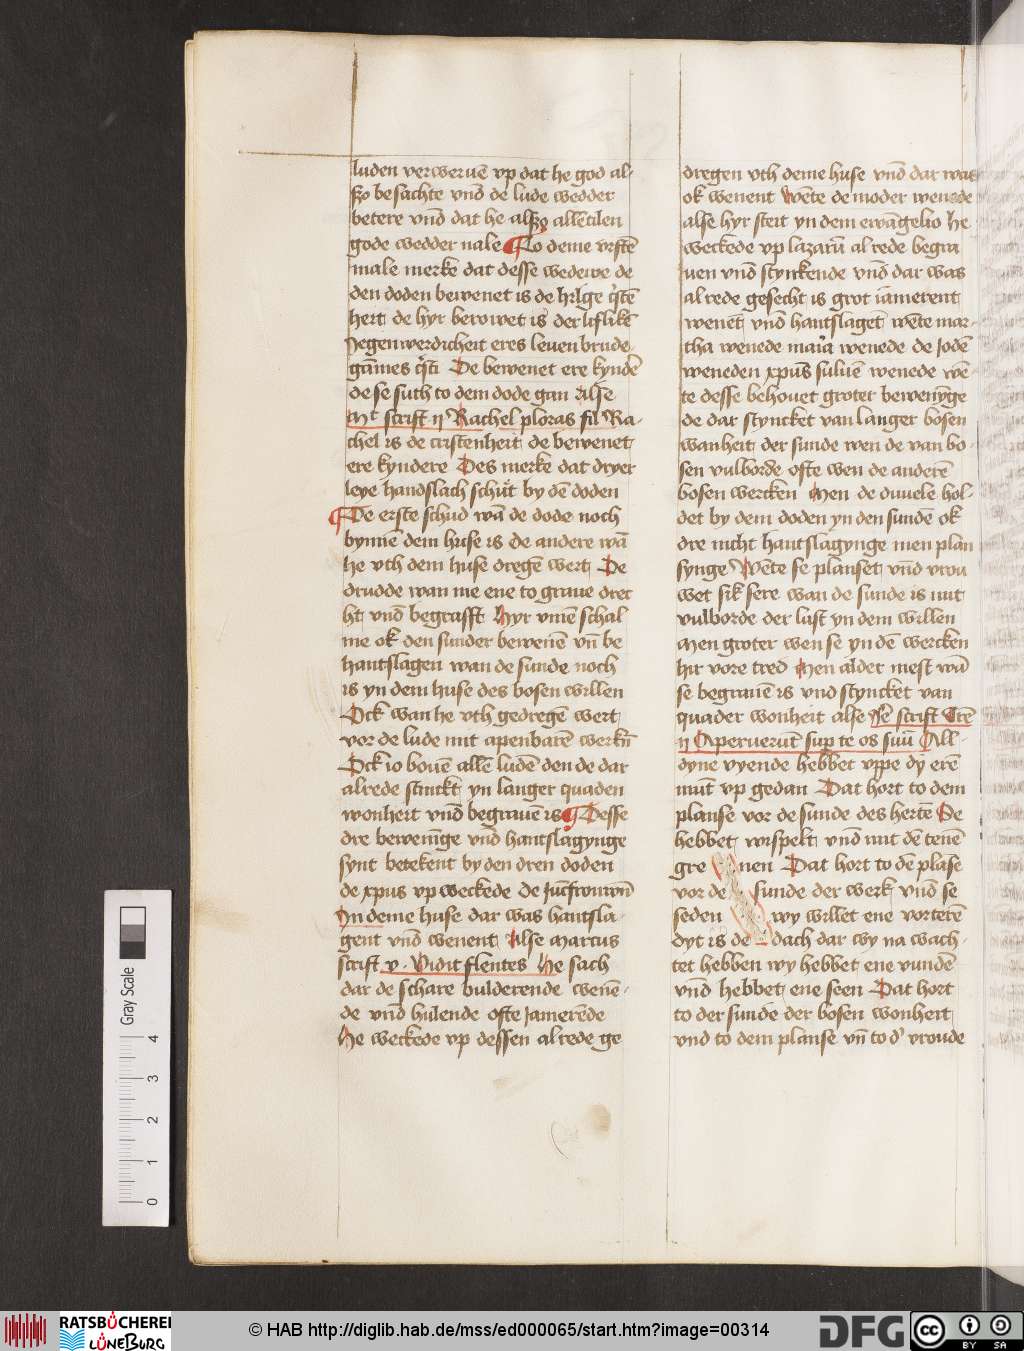 luden verweruē vp dat he god al-
ßo besachte vnd̄ de lude wedder
betere vnd̄ dat he alßo allētilen
gode wedder nale To deme ersten̄
male merke dat desse wedewe de
den doden bewenet is de hilge cristē
heit de hyr berowet is der liflikē
Jegenwerdicheit eres leuen brude
gāmes cristi De bewenet ere kyndē
de se suth to dem dode gan Alse
Mt scrift ij Rachel ploras fil Ra-
chel is de cristenheit de bewenet
ere kyndere Des merke dat dryer
leye handslach schut by dē doden
De erste schud wā de dode noch
bynne dem huse is De andere wā
he vth dem huse dregē wert De
drudde wan me ene to graue drec
ht vnd̄ begrafft Hyr vmē schal
me ok den sunder bewenē vn̄ be
hantslagen wan de sunde noch
is yn dem huse des bosen willen
Ock wan he vth gedregē wert
vor de lude mit apenbarē werkn̄
Ock io bouē allē ludē den de dar
alrede stinckt yn langer quaden
wonheit vnd̄ begrauē is Desse
dre bewenīge vnd̄ hantslagynge
synt betekent by den dren doden
de xpus vp weckede De jūcfrouwn̄
In deme huse dar was hantsla-
gent vnd̄ wenent Alse Marcus
scrift v · Vidit flentes He sach
dar de schare bulderende wenē-
de vnd̄ hulende ofte jamerēde
He weckede vp dessen alrede ge
dregen vth deme huse vnd̄ dar was
ok wenent Wēte de moder wenede
alse hyr steit yn dem ewāgelio he
weckede vp lazarū alrede begra
uen vnd̄ stynkende vnd̄ dar was
alrede gesecht is grot iāmerent
wenēt vnd̄ hantslagēt wēte mar-
tha wenede maria wenede de jodē
weneden xpus suluē wenede wē-
te desse behouet groter bewenȳge
de dar styncket van langer bosen
wanheit der sunde wen de van bo-
sen vulborde ofte wen de anderē
bosen wercken Men de duuele hol-
det by dem doden yn den sundē ok
dre nicht hantslagynge men plan
synge Wēte se plansēt vnd̄ vrou
wet sik sere wan de sunde is mit
vulborde der lust yn dem willen
Men groter wen se yn dē wercken
hir vore tred Men alder mest wā
se begrauē is vnd styncket van
quader wonheit alse Je scrift Trē
ij Aperuerūt sup te os suū All-
dyne vyende hebbet vppe dy erē
mūt vp gedan Dat hort to dem
planse vor de sunde des hertē De
hebbet wispelt vnd̄ mit dē tenē
gre nen Dat hort to dē plāse
vor de sunde der werk vnd̄ se
seden wy willet ene vorterē
dyt is de dach dar wy na wach-
tet hebben wy hebbet ene vundē
vnd hebbet ene seen Dat hort
to der sunde der bosen wonheit
vnd to dem planse vn̄ to d' vroude
Gray Scale
0 1 2 3 4
RATSBÜCHEREI LÜNEBURG
© HAB http://diglib.hab.de/mss/ed000065/start.htm?image=00314
DFG
cc BY SA